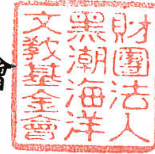 財團法人
黑潮海洋
文教基金會